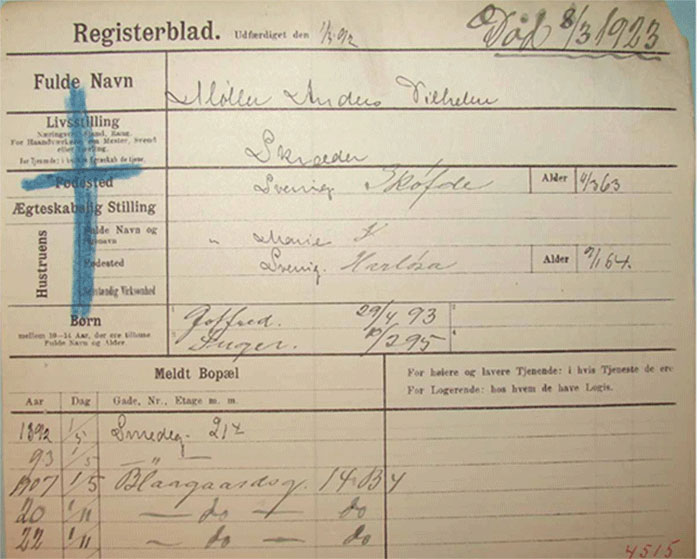 Registerblad. Udfærdiget den 1/5 92 Død 8/3 1923
Fulde Navn Møller Anders Vilhelm
Livsstilling
Næringsvej, Stand, Rang.
For Haandværkere om Mester, Svend
eller Lærling.
For Tjenende: i hvilken Egenskab de tjene.
Skræder
Fødested Sverrig Skøfde Alder 4/3 63
Ægteskabelig Stilling
Hustruens
Fulde Navn og
Pigenavn " Marie K
Fødested Sverrig. Harlösa Alder 9/1 64.
Selvstændig Virksomhed
Børn 1 Gotfred. 29/4 93 3
mellem 10-14 Aar, der ere tilhome 2 Inger. 10/2 95 4
Fulde Navn og Alder.
Meldt Bopæl
For høiere og lavere Tjenende: i hvis Tjeneste de ere
For Logerende: hos hvem de have Logis.
Aar Dag Gade, Nr., Etage m. m.
1892 1/5 Smedeg. 21
93 1/5 — " —
1907 1/5 Blaagaardsg. 14 B 4
20 1/11 — do — do
22 1/11 — do — do
4515